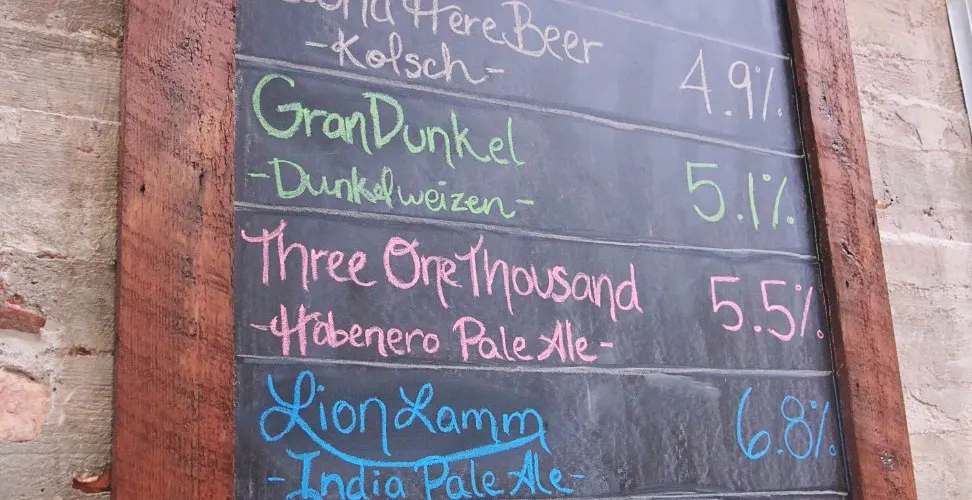 Here Beer
-Kolsch- 4.9%
GranDunkel
-Dunkelweizen- 5.1%
Three One Thousand
-Habenero Pale Ale- 5.5%
Lion Lamm
-India Pale Ale- 6.8%